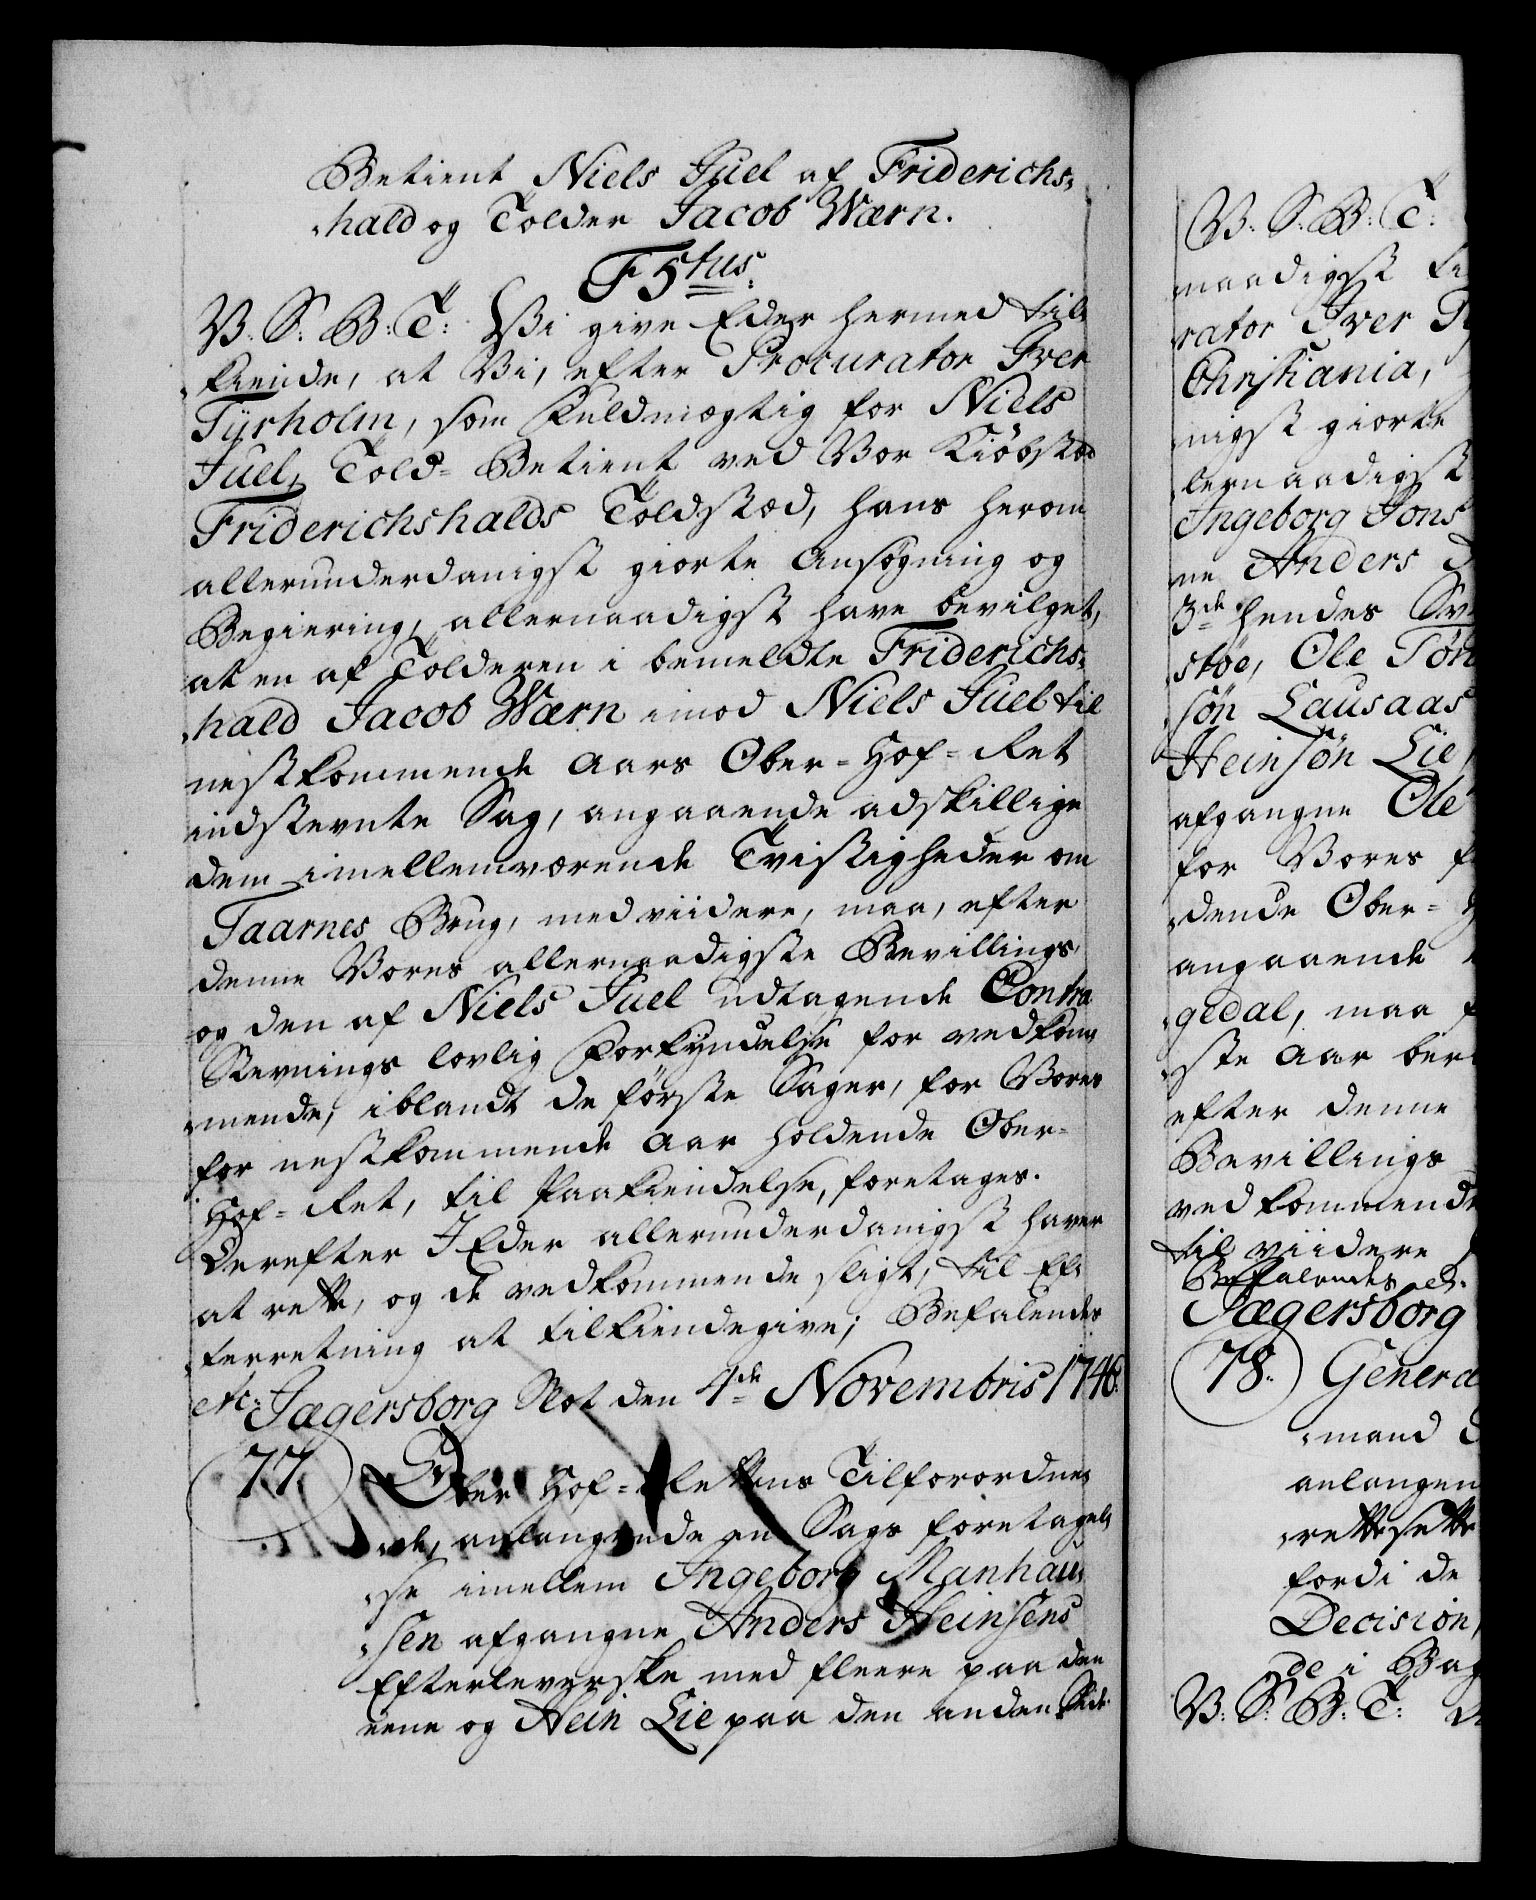 Betient Niels Juel af Friderichs,
,hald og Tolder Jacob Wærn.
F 5tus.
V. S: B: T: Vi give Eder hermed til,
,kiende, at Vi, efter Procurator Iver
Tyrholm, som Fuldmægtig for Niels
Juel, Told-Betient ved Vor Kiöbstæd
Friderichshalds Toldstæd, hans herom
allerunderdanigst giorte Ansøgning og
Begiering, allernaadigst have bevilget,
at en af Tolderen i bemeldte Friderichs,
,hald Jacob Wærn imod Niels Juel til
nestkommende Aars Ober-Hof-Ret
indstevnte Sag, angaaende adskillige
dem imellemværende Tvistigheder om
Taarnes Brug, med viidere, maa, efter
denne Vores allernaadigste Bevillings
og den af Niels Juel udtagende Contra
Stevnings lovlig Forkyndelse for vedkom,
,mende, iblandt de første Sager, for Vores
for nestkommende Aar holdende Ober-
Hof-Ret, til Paakiendelse, foretages.
Derefter I Eder allerunderdanigst haver
at rette, og de vedkommende sligt, til Ef,
,terretning at tilkiendegive; Befalendes
etc: Jægersborg Slot den 4de Novembris 1746.
77. Ober Hof-Rettens Tilforordne,
,de, anlangende en Sags foretagel,
,se imellem Ingeborg Manhau,
,sen afgangne Anders Heinsens
Efterleverske med fleere paa den
eene og Hein Lie paa den anden Side.
V. S: B: T:
naadigst
rator Iver
Christiania,
nigst giorte
lernaadigst
Ingeborg Jons
ne Anders
3de hendes
støe, Ole
søn Lausaas
Heinsøn Lie,
afgangne Ole
for Vores
,dende Ober-
angaaende
,gedal, maa
,ste Aar
efter denne
Bevillings
vedkommende
til viidere
Befalendes etc.
Jægersborg
78. Genera
,mand
anlangen
,rettesette
fordi de
Decision,
de i
V: S: B: T: